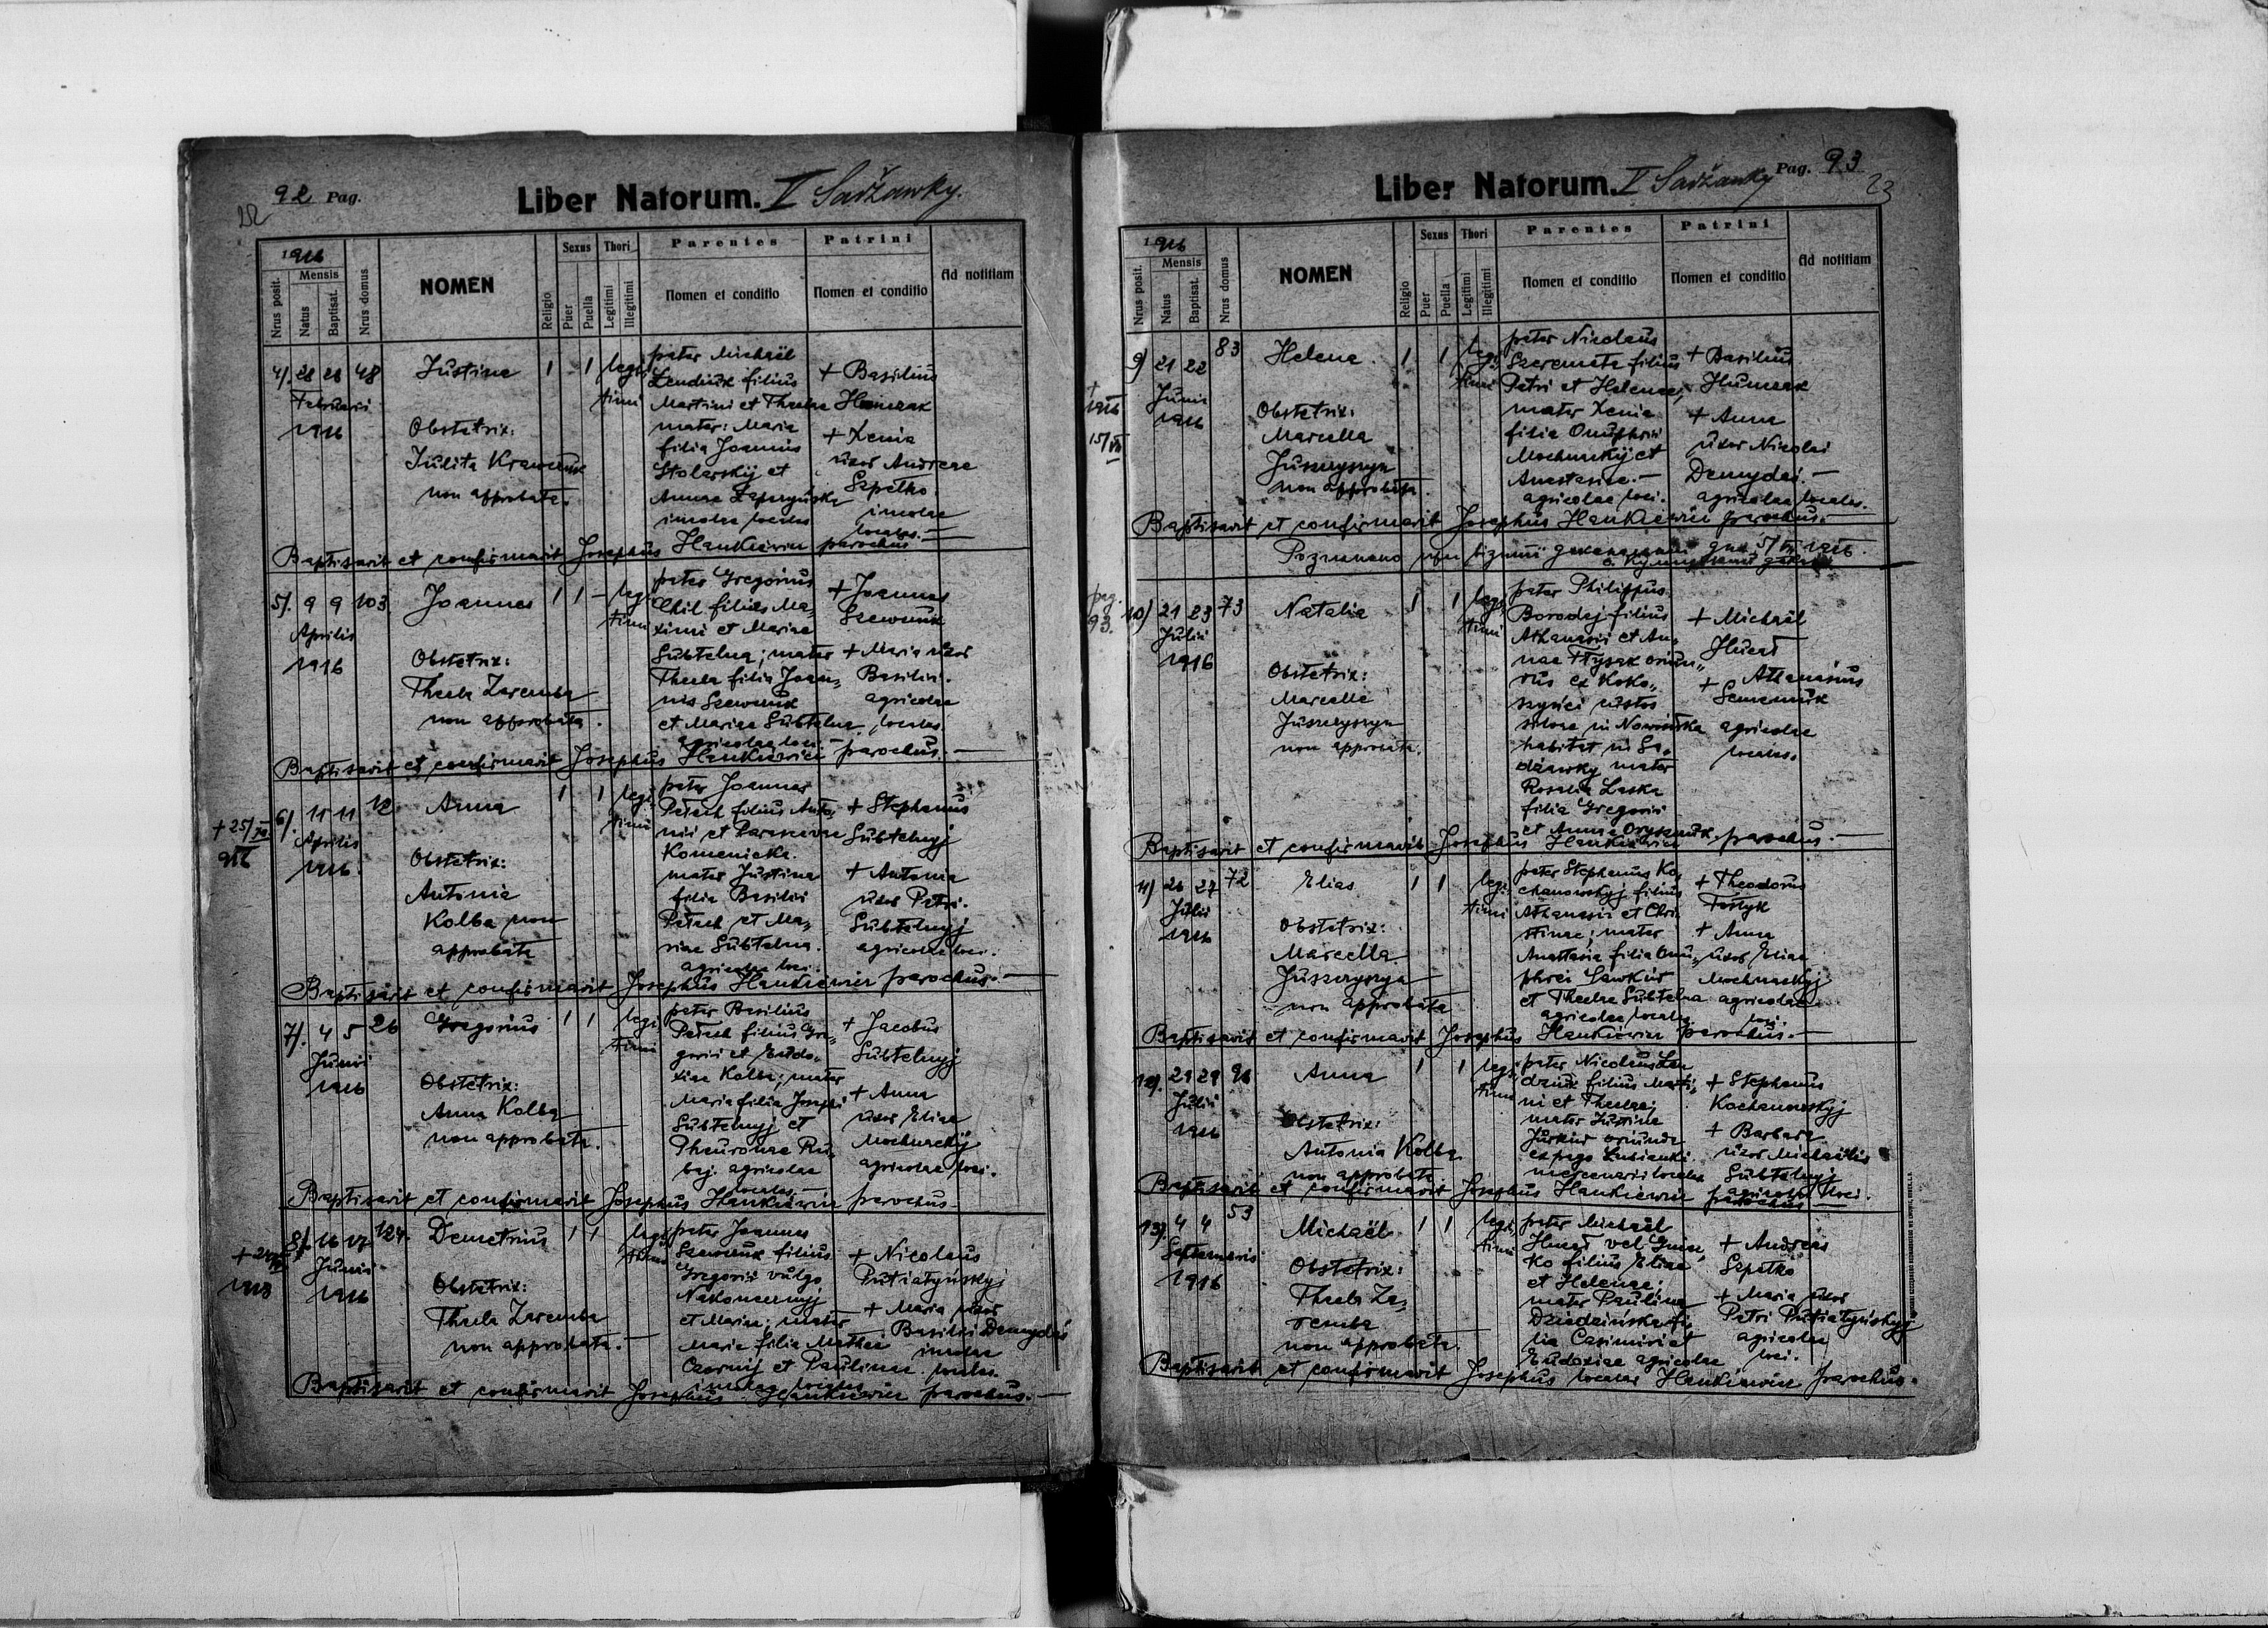 92 Pag.
22
Liber Natorum. V Sadžawky.
1916
Mensis
Nrus posit.
Natus
Baptisat.
Nrus domus
NOMEN
Religio
Sexus
Puer
Puella
Thori
Legitimi
Illegitimi
Parentes
Nomen et conditio
Patrini
Nomen et conditio
Ad notitiam
4/. 28 28 48 Justina 1 1 legi
timi
Februari
1916
Obstetrix:
Julita Krawczuk
non approbata.
pater Michaël
Lendiuk filius
Martini et Theclae
mater: Maria
filia Joannis
Stolarskÿ et
Annae
incolae locales
+ Basilius
+ Xenia
uxor Andreae
Szpetko
incolae
locales.—
Baptisavit et confirmavit Josephus Hankiewicz parochus
5/. 9 9 103 Joannes 1 1 – legi
timi
Aprilis
1916
Obstetrix:
Thecla Zaremba
non approbata.
pater Gregorius
filius Ma,
ximi et Mariae
Subtelna; mater
Thecla filia Joan„
nis Szewczuk
et Mariae Subtelna
agricolae loci.—
+ Joannes
Szewczuk
+ Maria uxor
Basilii.
agricolae
locales.
Baptisavit et confirmavit Josephus Hankiewicz parochus.—
+ 25/
916
6/. 11 11 12 Anna 1 1 legi
timi
Aprilis
1916.
Obstetrix:
Antonia
Kolba non
approbata
pater Joannes
Petach filius Anto,
nii et Parasceviae
Komenicka.
mater Justina
filia Basilii
Petach et Ma„
riae Subtelna.
agricolae loci.
+ Stephanus
Subtelnyj
+ Antonia
uxor Petri.
Subtelnyj
agricolae loci.
Baptisavit et confirmavit Josephus Hankiewicz parochus.—
7/. 4 5 26 Gregorius 1 1 legi
timi
Junii
1916
Obstetrix:
Anna Kolba
non approbata.
pater Basilius
Petach filius Gre„
gorii et Eudo„
xiae Kolba; mater
Maria filia Josephi
Subtelnyj et
Pheuroniae Ru„
baj. agricolae
locales.—
+ Jacobus
Subtelnyj
+ Anna
uxor Eliae
Mochnackÿ
agricolae loci.
Baptisavit et confirmavit Josephus Hankiewicz parochus.
1918
8/. 16 17 124. Demetrius 1 1 legi
timi
Junii
1916
Obstetrix:
Thecla Zaremba
non approbata.—
pater Joannes
Szewczuk filius
Gregorii vulgo
Nakonecznyj
et Mariae; mater
Maria filia Mathei
Czornij et Paulinae
incolae locales
+ Nicolaus
Putiatyńskyj
+ Maria uxor
Basilii Demydas
incolae
locales.
Baptisavit et confirmavit Josephus Hankiewicz parochus.—
Pag. 93
23
Liber Natorum. V Sadžawky
1916
Mensis
Nrus posit.
Natus
Baptisat.
Nrus domus
NOMEN
Religio
Sexus
Puer
Puella
Thori
Legitimi
Illegitimi
Parentes
Nomen et conditio
Patrini
Nomen et conditio
Ad notitiam
+
1916
15/VII
9) 21 22 83 Helena 1 1 legi
timi
Junii
1916
Obstetrix:
Marcella
Juszczyszyn
non approbata.
pater Nicolaus
Szeremeta filius
Petri et Helenae;
mater Xenia
filia Onuphrii
Mochnackÿ et
Anastasiae.—
agricolae loci.
+ Basilius
+ Anna
uxor Nicolai
Demydas.—
agricolae locales.
Baptisavit et confirmavit Josephus Hankiewicz parochus.
1916.
pag.
93.
10) 21 23 73 Natalia 1 1 legi
timi
Julii
1916
Obstetrix:
Marcella
Juszczyszyn
non approbata.
pater Philippus
Borodaj filius
Athanasii et An„
nae
rus ex Koko„
szyńci custos
silvae in Nowosiułka
habitat in Sa„
džawky mater
Rosalia Laska
filia Gregorii
et Annae Oryszczuk.
+ Michaël
Hucał
+ Athanasius
Semeniuk
agricolae
locales.
Baptisavit et confirmavit Josephus Hankiewicz parochus.—
11) 26 27 72 Elias 1 1 legi
timi
Julii
1916
Obstetrix:
Marcella
Juszczyszyn
non approbata
pater Stephanus Ko„
chanowskyj filius
Athanasii et Chri
stinae; mater
Anastasia filia Onu„
phrii Lawkiw
et Theclae Subtelna
agricolae locales
+ Theodorus
Tostyk
+ Anna
uxor Eliae
Mochnackyj
agricolae
loci.
Baptisavit et confirmavit Josephus Hankiewicz parochus.—
12). 29 29 96 Anna 1 1 legi
timi
Julii
1916
Obstetrix:
Antonia Kolba
non approbata
pater Nicolaus Len
dziuk filius Marti„
ni et Theclae;
mater Justina
Jurkiw oriunda
ex pago Lubianki
mercenarii locales
+ Stephanus
Kochanowskyj
+ Barbara
uxor Michaëlis
Subtelnyj
agricolae loci.
Baptisavit et confirmavit Josephus Hankiewicz parochus—
13) 4 4 53 Michaël 1 1 legi
timi
Septembris
1916
Obstetrix:
Thecla Za„
remba
non approbata
pater Michaël
Hucał vel
ko filius Eliae
et Helenae;
mater Paulina
Dziedzińska fi„
lia Casimiri et
Eudoxiae agricolae
locales
+ Andreas
Szpetko
+ Maria uxor
Petri Putiatyńskyj
agricolae
loci.
Baptisavit et confirmavit Josephus Hankiewicz parochus.